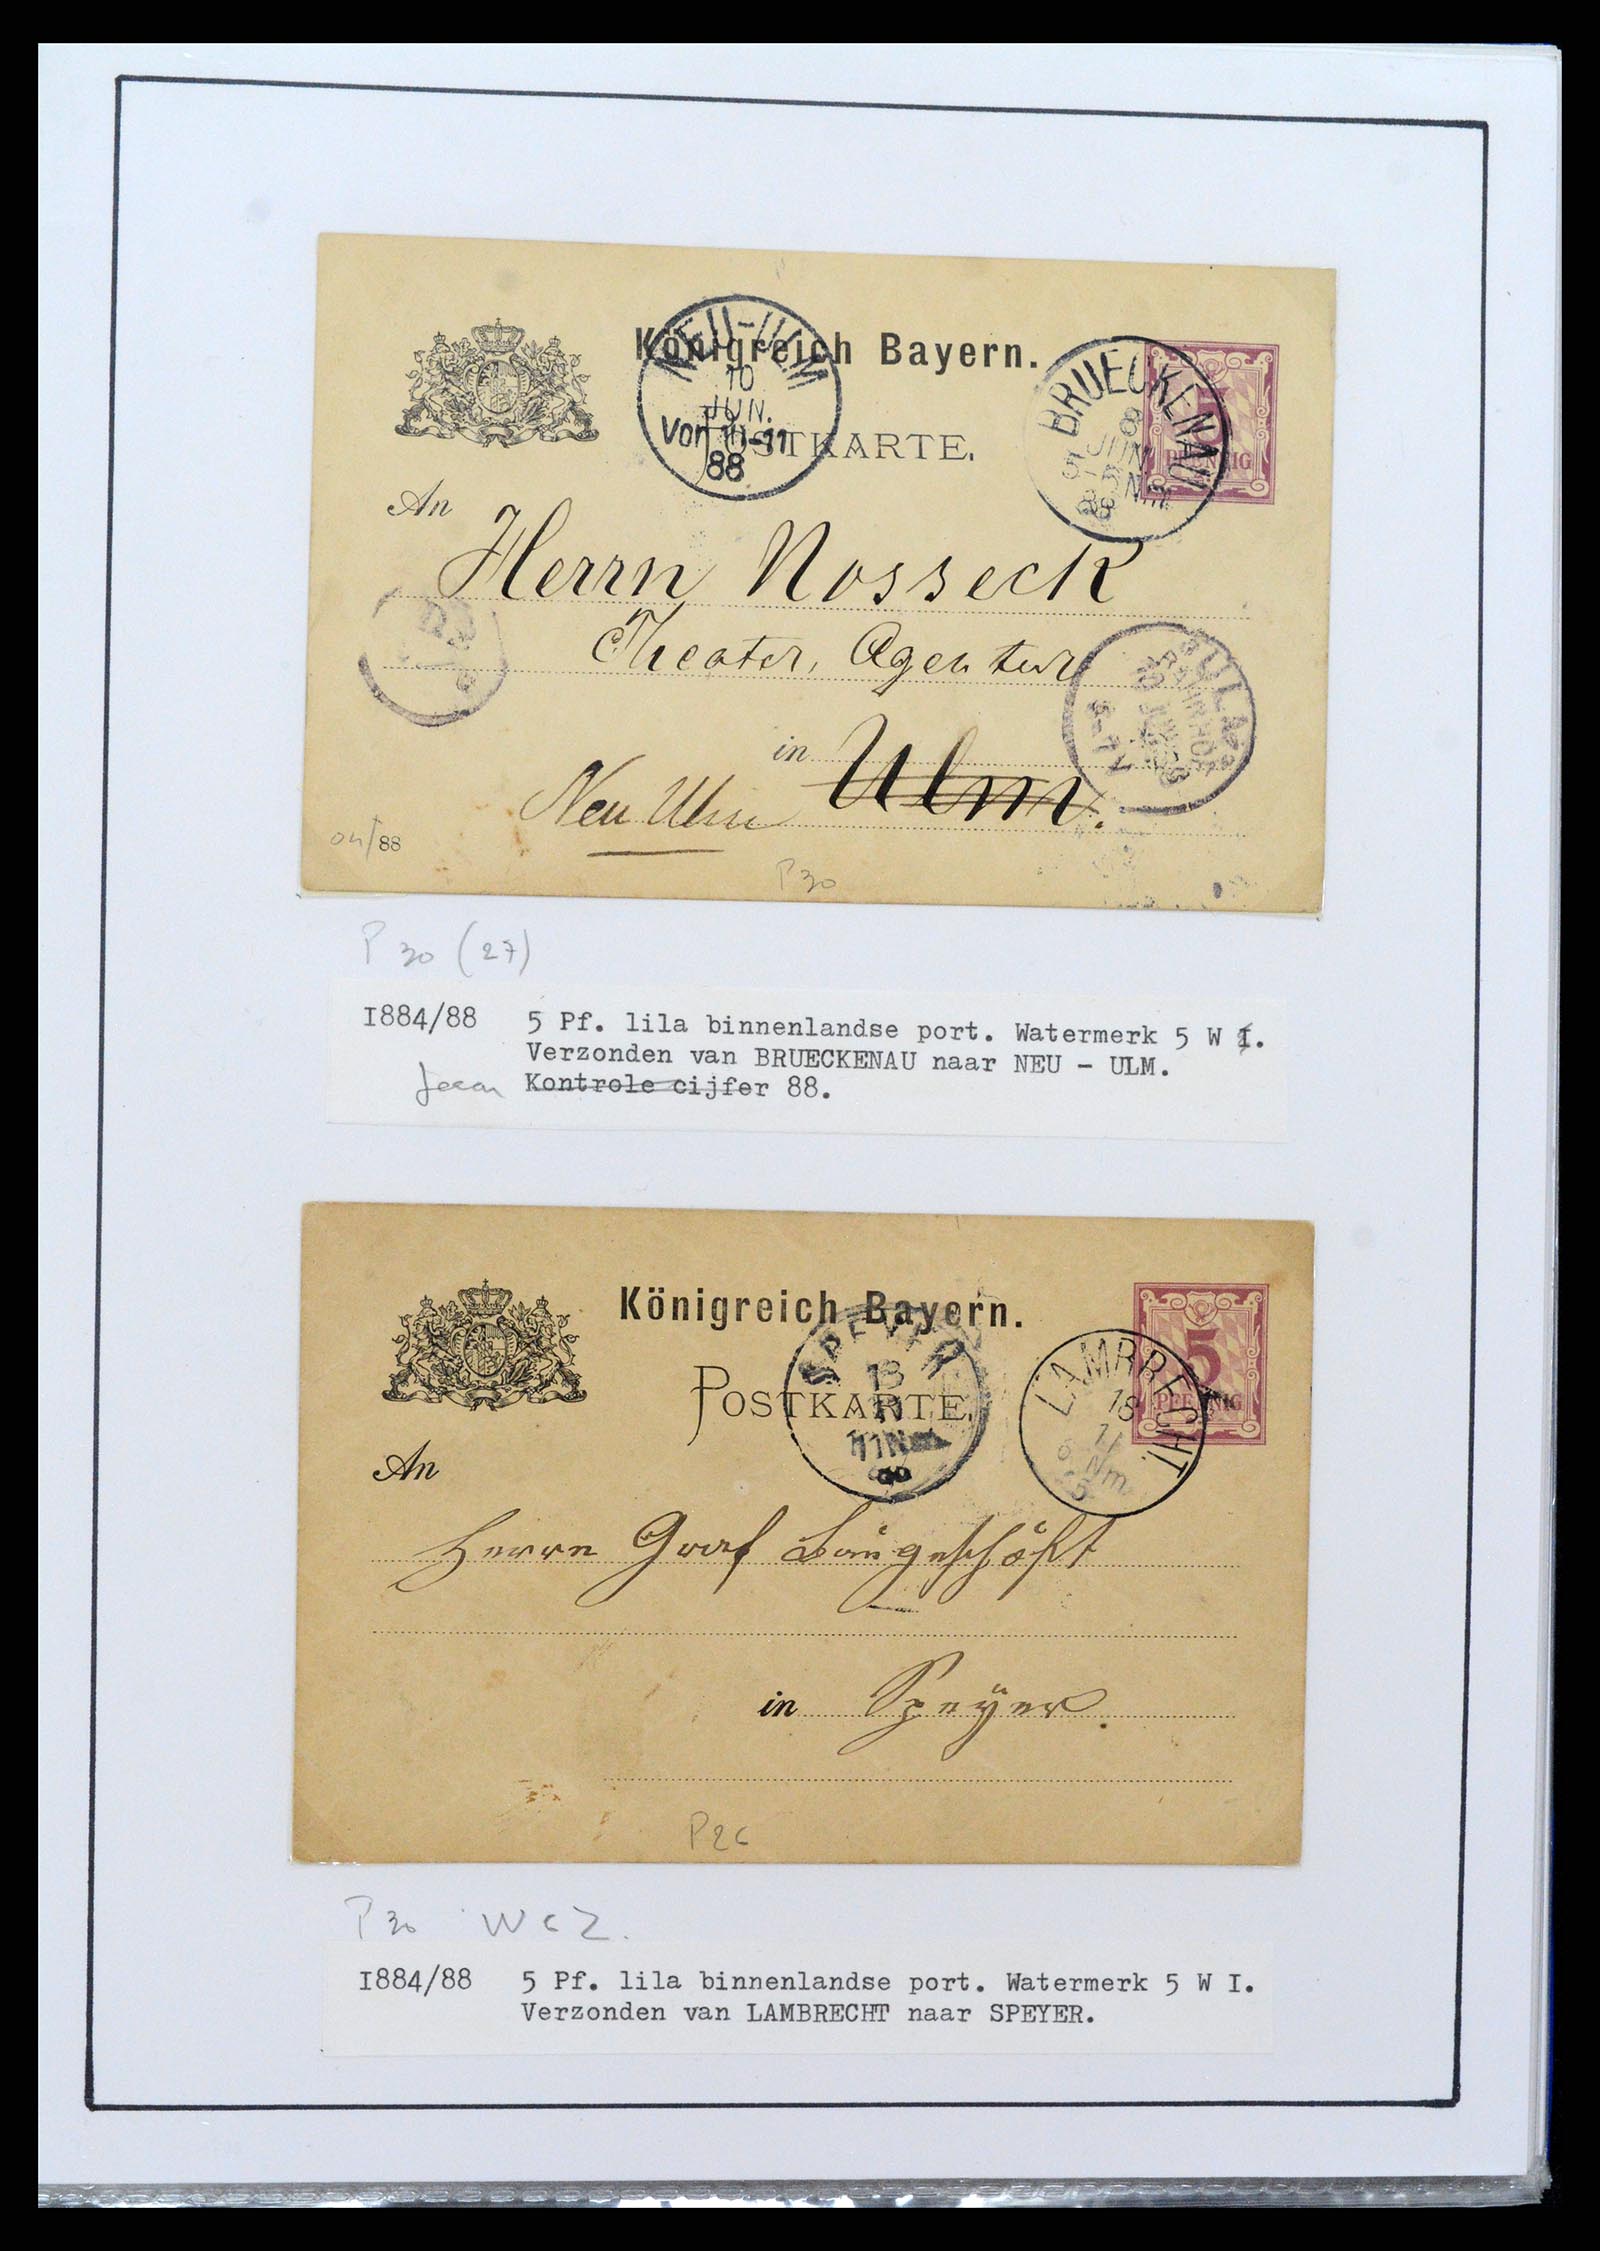 Königreich Bayern.
POSTKARTE.
NEU-ULM
10
JUN.
Vor 10-11
88
BRUECKENAU
8
JUN
5-6 Nm
88
5
PFENNIG
An
Herrn Nosseck
Theater, Agentur
in Ulm.
Neu Ulm
ULM
BAHNHOF
10 JUN
6-7 N
04/88
P30
P 30 (27)
I884/88 5 Pf. lila binnenlandse port. Watermerk 5 W I.
Verzonden van BRUECKENAU naar NEU - ULM.
Jaar Kontrole cijfer 88.
Königreich Bayern.
POSTKARTE.
SPEYER
18
11
11 Nm
LAMBRECHT
18
11
6 Nm
5
PFENNIG
An
Herrn Graf Baugeschäft
in Speyer.
P26
P30 W6Z.
I884/88 5 Pf. lila binnenlandse port. Watermerk 5 W I.
Verzonden van LAMBRECHT naar SPEYER.